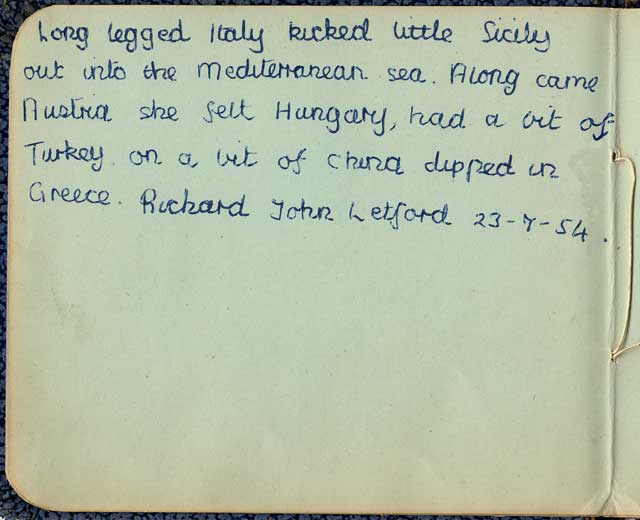 Long legged Italy kicked little Sicily
out into the Mediterranean sea. Along came
Austria she felt Hungary, had a bit of
Turkey on a bit of China dipped in
Greece. Richard John Letford 23-7-54.